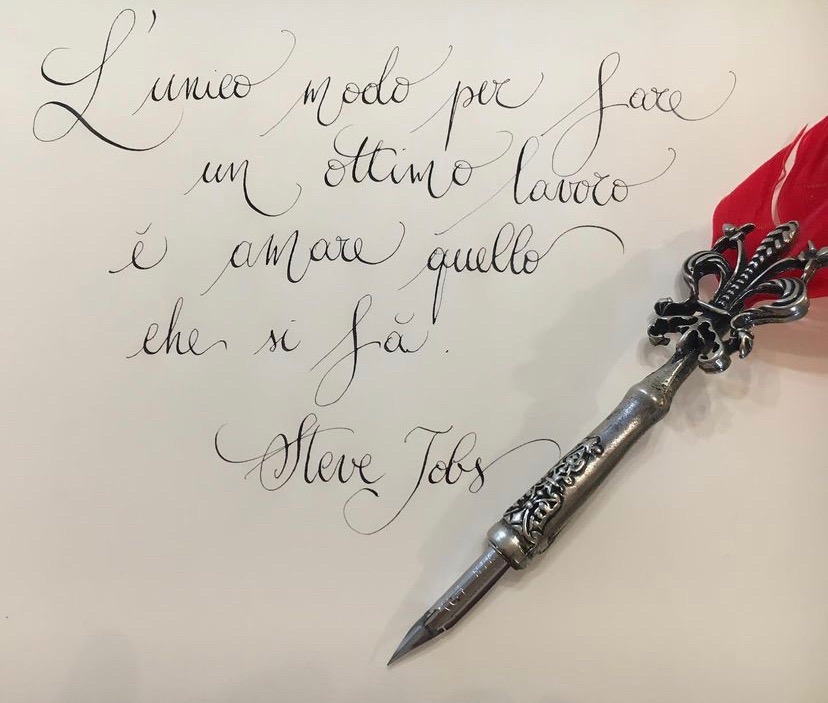 L'unico modo per fare
un ottimo lavoro
è amare quello
che si fà.
Steve Jobs